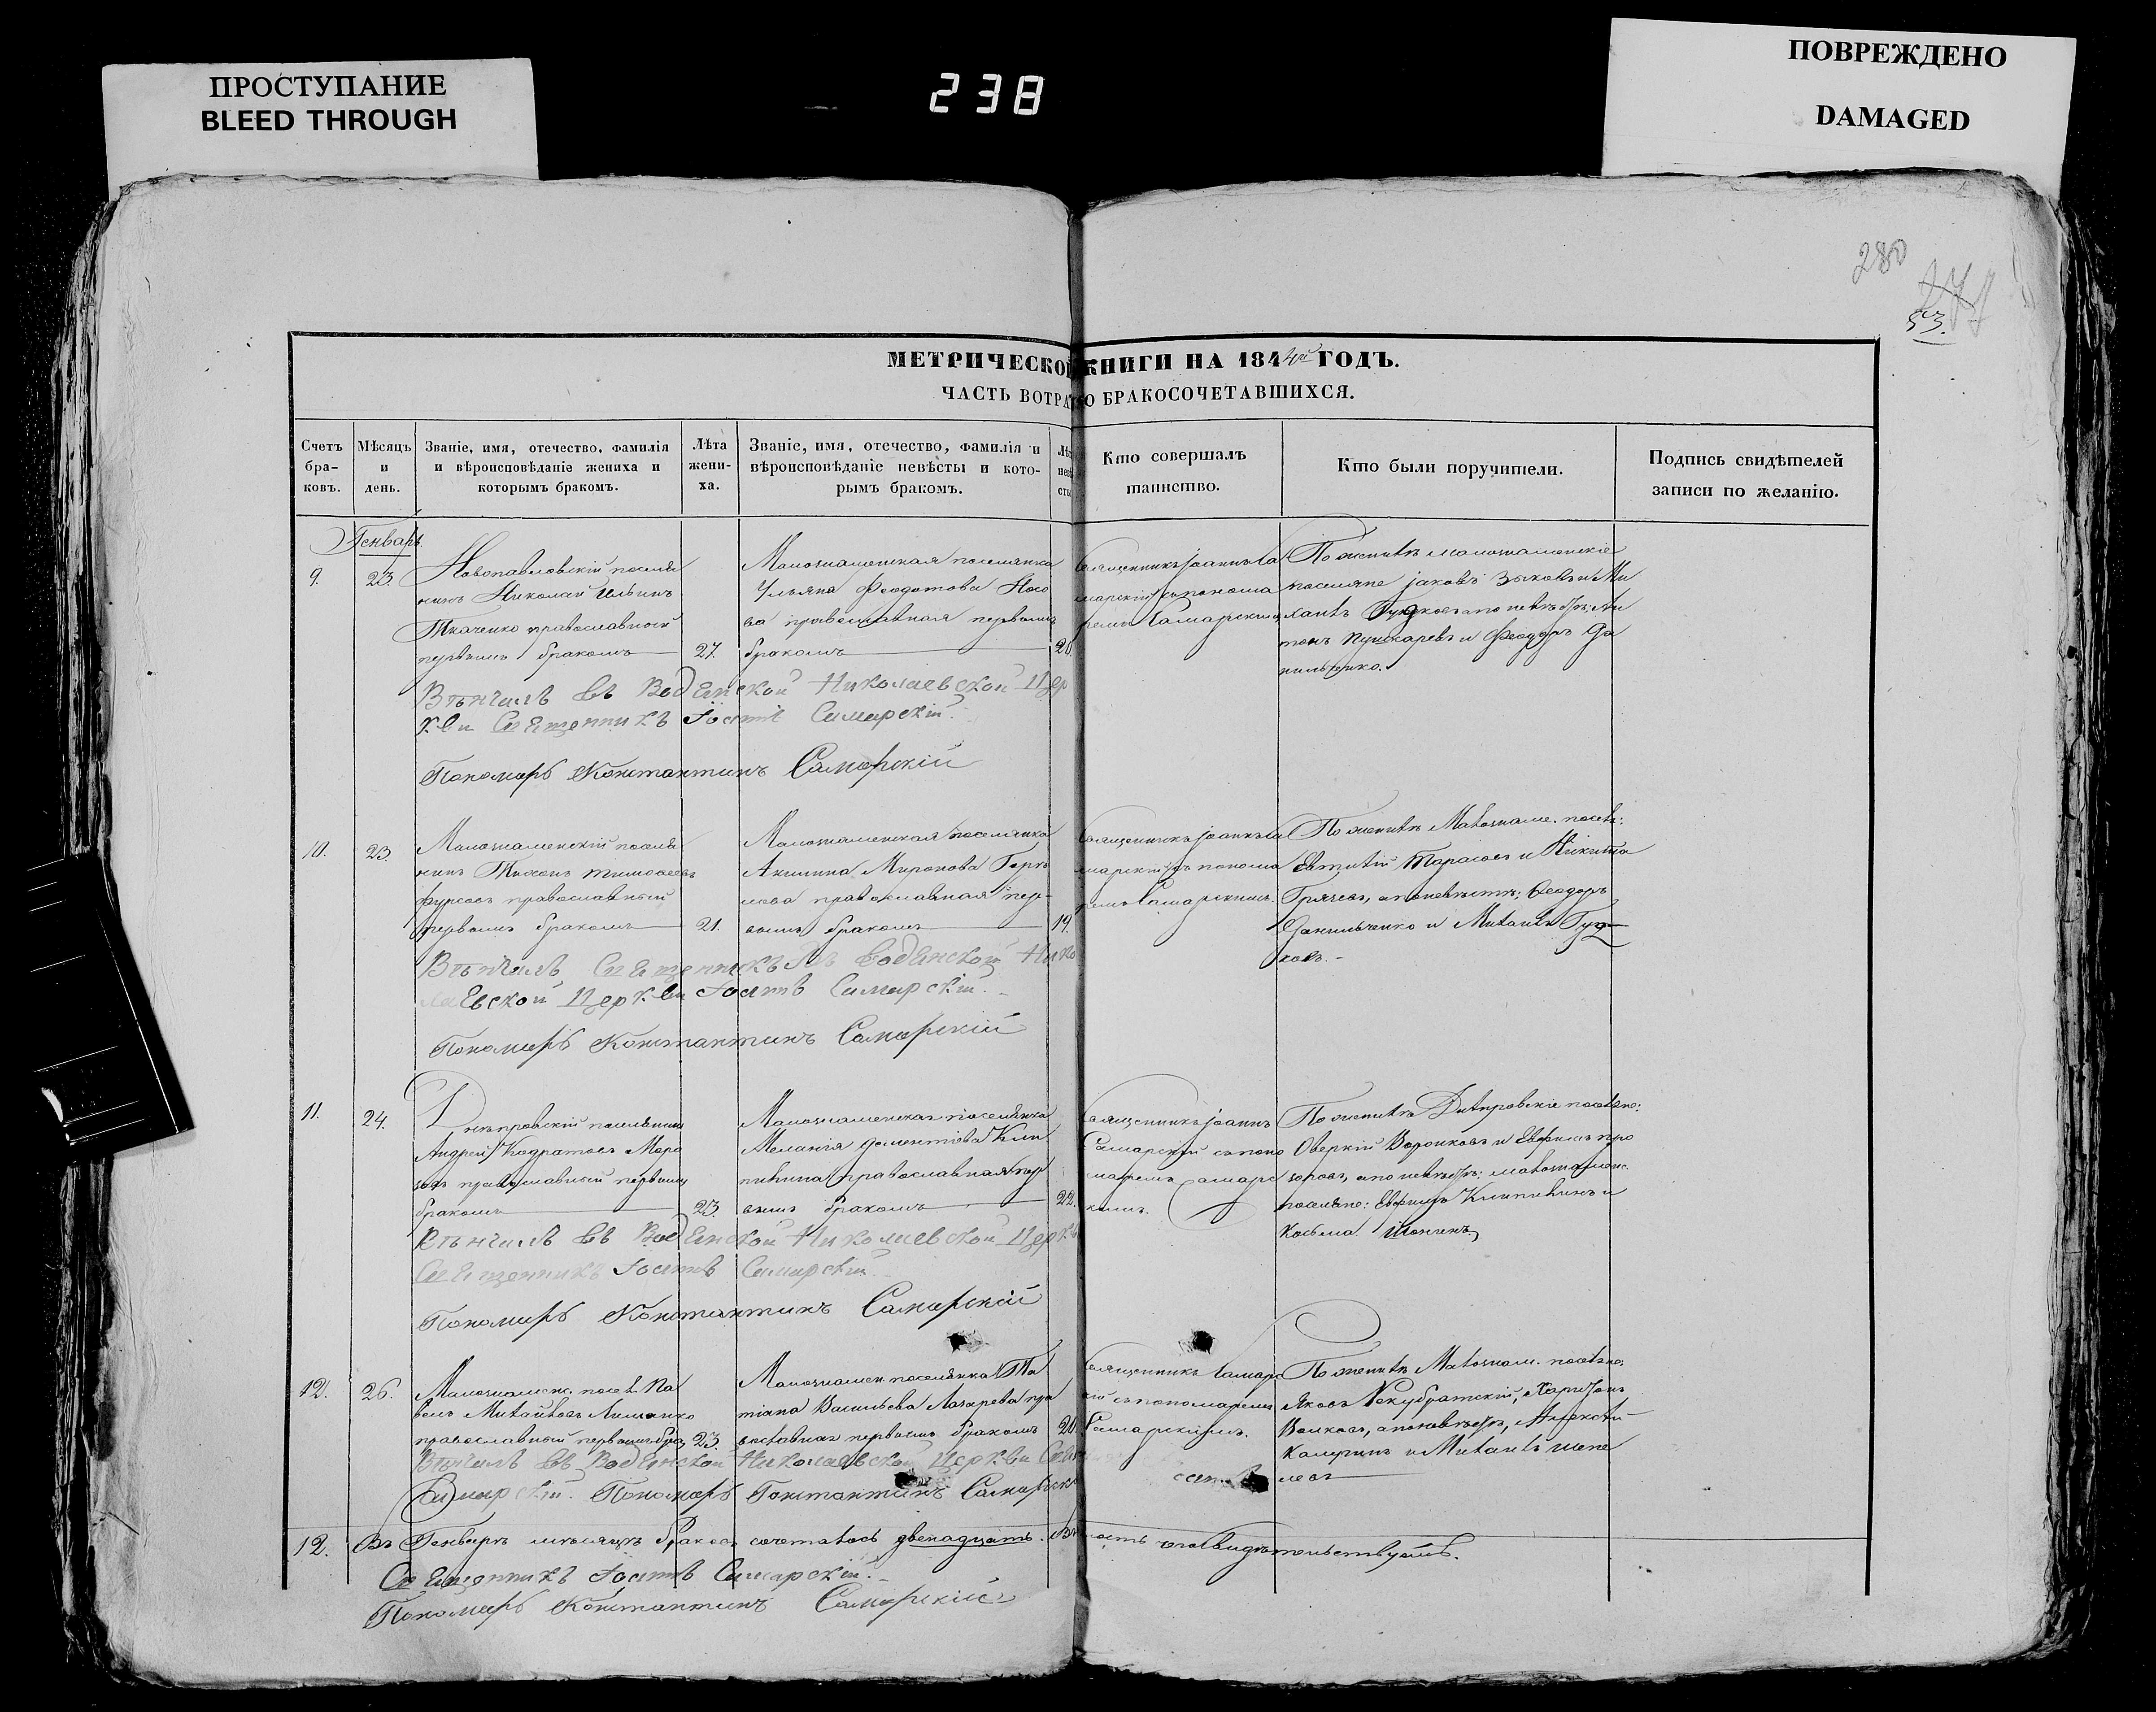 ПРОСТУПАНИЕ
BLEED THROUGH
238
ПОВРЕЖДЕНО
DAMAGED
280
53.
МЕТРИЧЕСКОЙ КНИГИ НА 1844й ГОДЪ.
ЧАСТЬ ВОТРАЯ О БРАКОСОЧЕТАВШИХСЯ.
Счетъ браковъ.
Мѣсяцъ и день.
Званіе, имя, отечество, фамилія
и вѣроисповѣданіе жениха и
которымъ бракомъ.
Лѣта
жени-
ха.
Званіе, имя, отечество, фамилія и
вѣроисповѣданіе невѣсты и кото-
рымъ бракомъ.
Лѣ
нев
сты
Кто совершалъ
таинство.
Кто были поручители.
Подпись свидѣтелей
записи по желанію.
Генварь.
9.
23.
Новопавловскій поселя
нинъ Николай Ильинъ
Ткаченко православный
первымъ бракомъ
27.
Малознаменская поселянка
Ульяна Феодотова Носо
ва православная первымъ
бракомъ
20.
Священникъ Іоаннъ Са
марскій съ понома
ремъ Самарскимъ
По женихѣ малознаменскіе
поселяне Іаковъ Зыковъ и Ми
хаилъ Гудковъ а по невѣстѣ: Ан
тонъ Пушкаревъ и Феодоръ Да
нильченко.
Вѣнчалъ въ Водянской Николаевской Цер
кви Священникъ Іоаннъ Самарскій.
Пономарь Константинъ Самарскій
10.
23.
Малознаменскій поселя
нинъ Тихонъ Тимофеевъ
Фурсовъ православный
первымъ бракомъ
21.
Малознаменская поселянка
Акилина Миронова
православная пер-
вымъ бракомъ
19.
Священникъ Іоаннъ Са
марскій съ понома
ремъ Самарскимъ.
По женихѣ Малознаме. поселя:
Евтихій Тарасовъ и Никита
Грачевъ, а по невѣстѣ; Феодоръ
Данильченко и Михаилъ Гуд-
ковъ. -
Вѣнчалъ Священникъ въ Водянской Нико
лаевской Церкви Іоаннъ Самарскій.
Пономарь Константинъ Самарскій
11.
24.
Днѣпровскій поселянинъ
Андрей Кодратовъ Моро
зовъ православный первымъ
бракомъ
23.
Малознаменская поселянка
Меланія Доментіева Кли
пинина православная пер
вымъ бракомъ
22.
Священникъ Іоаннъ
Самарскій съ поно
маремъ Самарс
кимъ.
По женихѣ Днѣпровскіе поселяне:
Аверкій Воронковъ и Ефимъ Про
зоровъ, а по невѣстѣ: малознаменс.
поселяне: Ефимъ Клипининъ и
Косьма
Вѣнчалъ въ Водянской Николаевской Церкв
Священникъ Іоаннъ Самарскій.
Пономарь Константинъ Самарскій
12.
26.
Малознаменс. посел. Па
велъ Михайловъ
православный первымъ бра.
23.
Малознамен. поселянка Та
тіана Васильева Лазарева пра
вославная первымъ бракомъ
20.
Священникъ Самарс
кій съ пономаремъ
Самарскимъ.
По женихѣ Малознам. поселяне,
Яковъ Харитонъ
Волковъ, а по невѣстѣ, Алексѣй
Калугинъ и Михаилъ Шепе
левъ
Вѣнчалъ въ Водянской Николаевской Церкви Свящ
Самарскій. Пономарь Константинъ Самарск
12.
Въ Генварѣ мѣсяцѣ браковъ сочеталось двенадцать. Въ вѣрность чего свидѣтельствуемъ.
Священникъ Іоаннъ Самарскій.
Пономарь Константинъ Самарскій